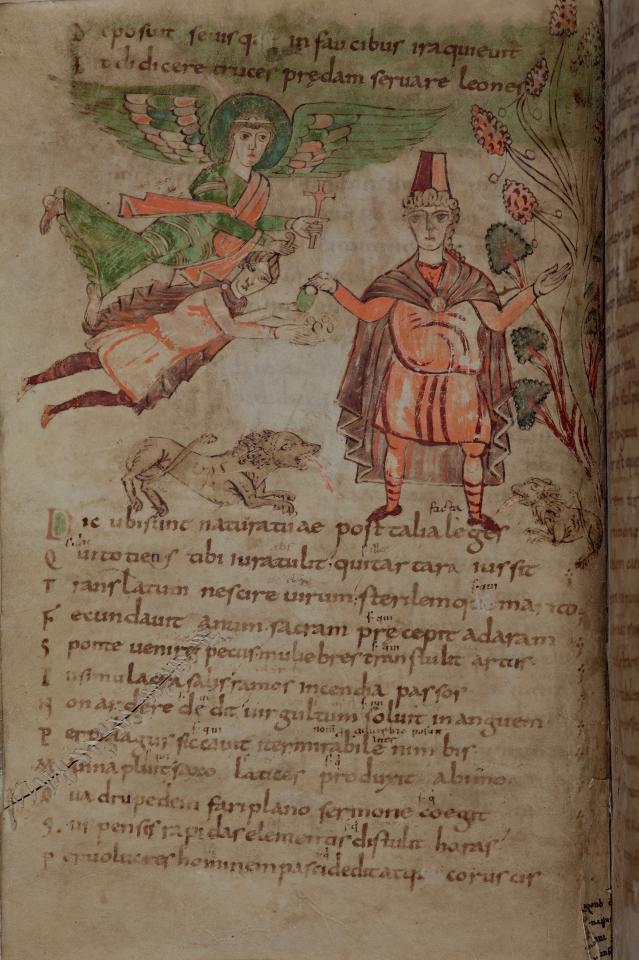 Deposuit seuisq; in faucibus ira quieuit
Et didicere truces prędam seruare leones
facta
Dic ubi sunt natura tuae post talia leges
Qui totiens tibi iura tulit. qui tartara iussit
Translatum nescire uirum; sterilemq; marito
Fecundauit anum. sacram precepit ad aram
Sponte uenire pecus. muliebres transtulit artus
In simulacra salis ramos incendia passos
Non ardere dedit uirgultum soluit in anguem
Per pelagus siccauit iter mirabile nimbis
Manna pluit saxo latices produxit ab imo
Quadrupedem fari plano sermone coegit
Suspensis rapidas elementis distulit horas
Per uolucres hominem pasci dedit atq; coruscis